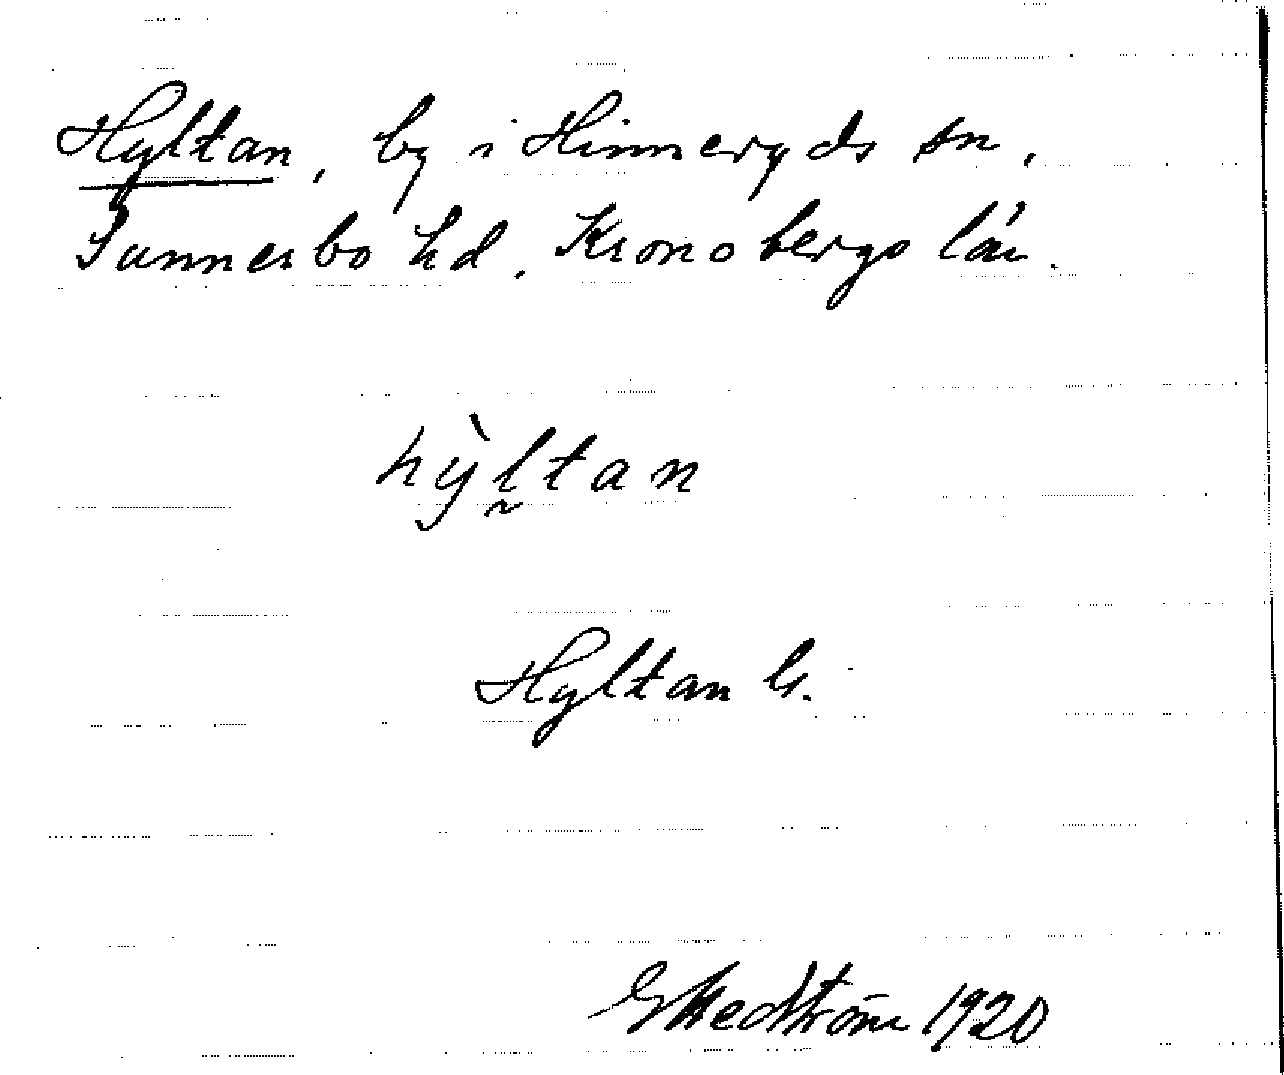 Hyltan, by i Hinneryds sn,
Sunnerbo hd, Kronobergs län.
hỳltan
Hyltan Gr.
G Hedström 1920